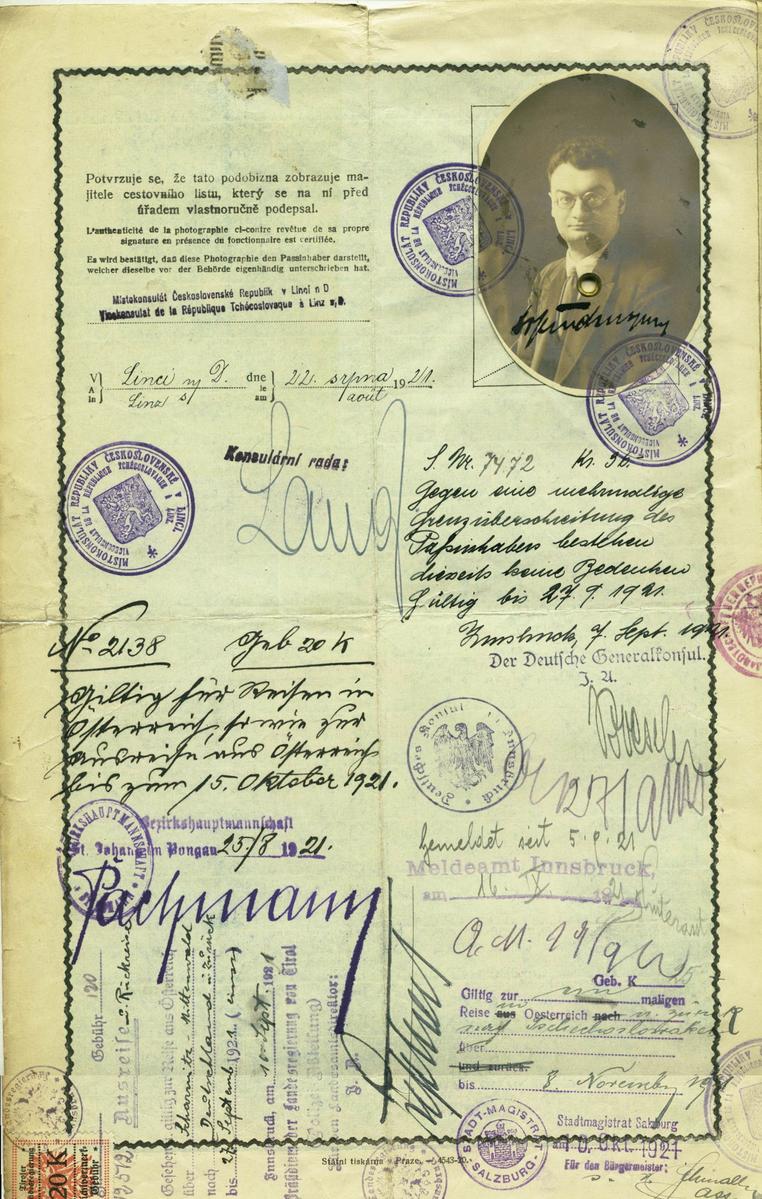 Potvrzuje se, že tato podobizna zobrazuje ma-
jitele cestovního listu, který se na ní před
úřadem vlastnoručně podepsal.
L'authenticité de la photographie ci-contre revêtue de sa propre
signature en présence du fonctionnaire est certifiée.
Es wird bestätigt, daß diese Photographie den Passinhaber darstellt,
welcher dieselbe vor der Behörde eigenhändig unterschrieben hat.
Místokonsulát Československé Republik v Linci n D
Vicekonsulat de la République Tchécoslovaque à Linz s/D.
V
A
in
Linci n/ D. dne 22. srpna 1921.
Linz s/ le août
am
MÍSTOKONSULÁT REPUBLIKY ČESKOSLOVENSKÉ V LINCI.
VICECONSULAT DE LA RÉPUBLIQUE TCHÉCOSLOVAQUE À LINZ
Konsulární rada:
Lang
S. Nr. 7472 Kr. 36.-
Gegen eine mehrmalige
Grenzüberschreitung des
Paßinhabers bestehen
diesseits keine Bedenken
Gültig bis 27. 9. 1921.
Innsbruck, 7. Sept. 1921.
Der Deutsche Generalkonsul.
J. A.
Deutsches Konsulat in Innsbruck
No 2138 Geb 20 K
Giltig für Reisen in
Österreich, sowie zur
Ausreise aus Österreich
bis zum 15. Oktober 1921.
Bezirkshauptmannschaft
St. Johann im Pongau 25/8 1921.
BEZIRKSHAUPTMANNSCHAFT
Pachmann
gemeldet seit 5. 9. 21
Meldeamt Innsbruck,
am 16. IX. 1921
Geb. K
Giltig zur maligen
Reise aus Oesterreich nach
in
Tschechoslowakei
über
und zurück.
bis 8. November 1921
STADT-MAGISTRAT SALZBURG
Stadtmagistrat Salzburg
am OKT. 1921
Für den Bürgermeister:
Gebühr 120
Ausreise u. Rückreise
Gesehen giltig zur Reise aus Österreich
über Scharnitz-Mittenwald
nach Deutschland u. zurück
bis 27. September 1921.
Innsbruck, am 10. Sept. 1921
Präsidium der Landesregierung von Tirol
J. A.
20 K
Státní tiskárna v Praze. 4543-20.